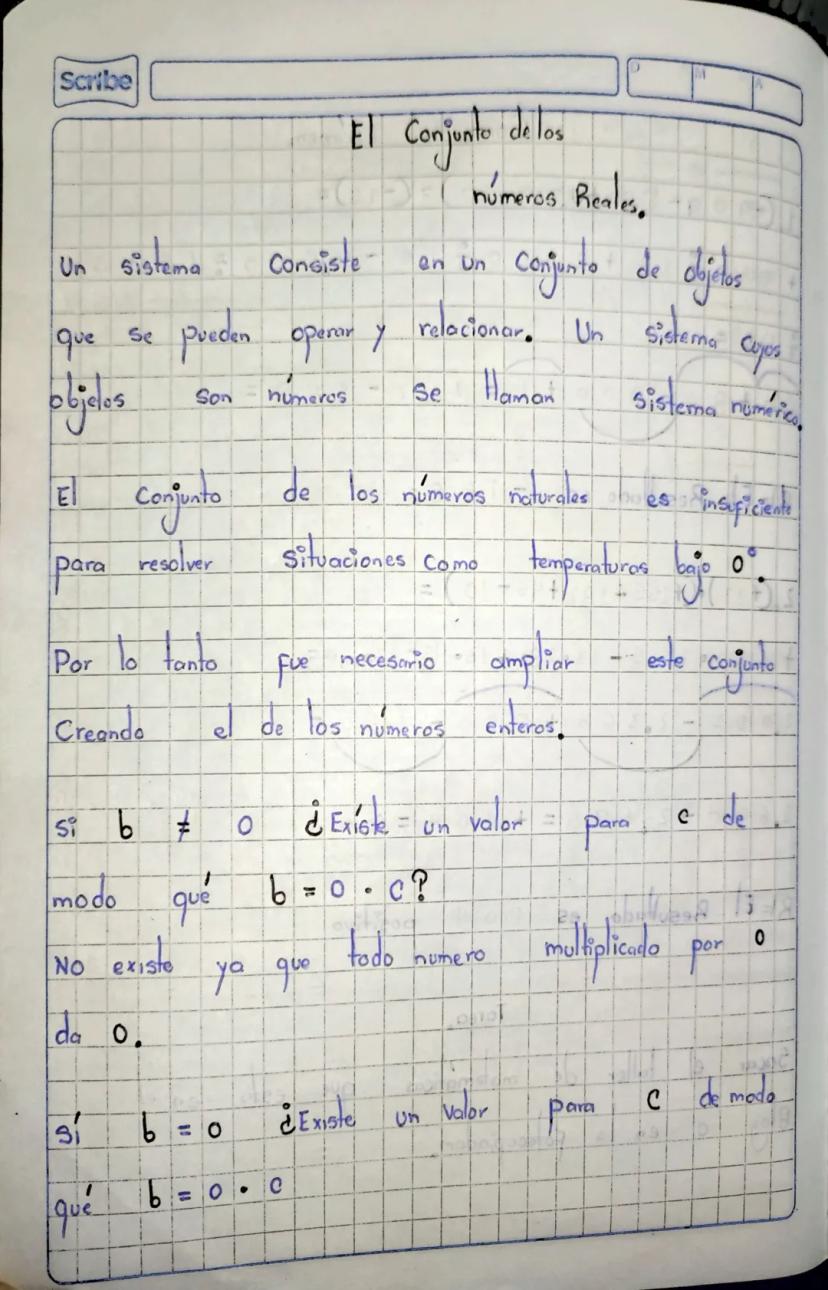 Scribe
D M A
El Conjunto de los
números Reales.
Un sistema consiste en un conjunto de objetos
que se pueden operar y relacionar. Un sistema cuyos
objetos son números se llaman sistema numérico.
El conjunto de los números naturales es insuficiente
para resolver situaciones como temperaturas bajo 0°.
Por lo tanto fue necesario ampliar este conjunto
Creando el de los números enteros.
si b ≠ 0 ¿Existe un valor para c de
modo qué b = 0 · c?
No existe ya que todo numero multiplicado por 0
da 0.
sí b = 0 ¿Existe un valor para c de modo
qué b = 0 · c